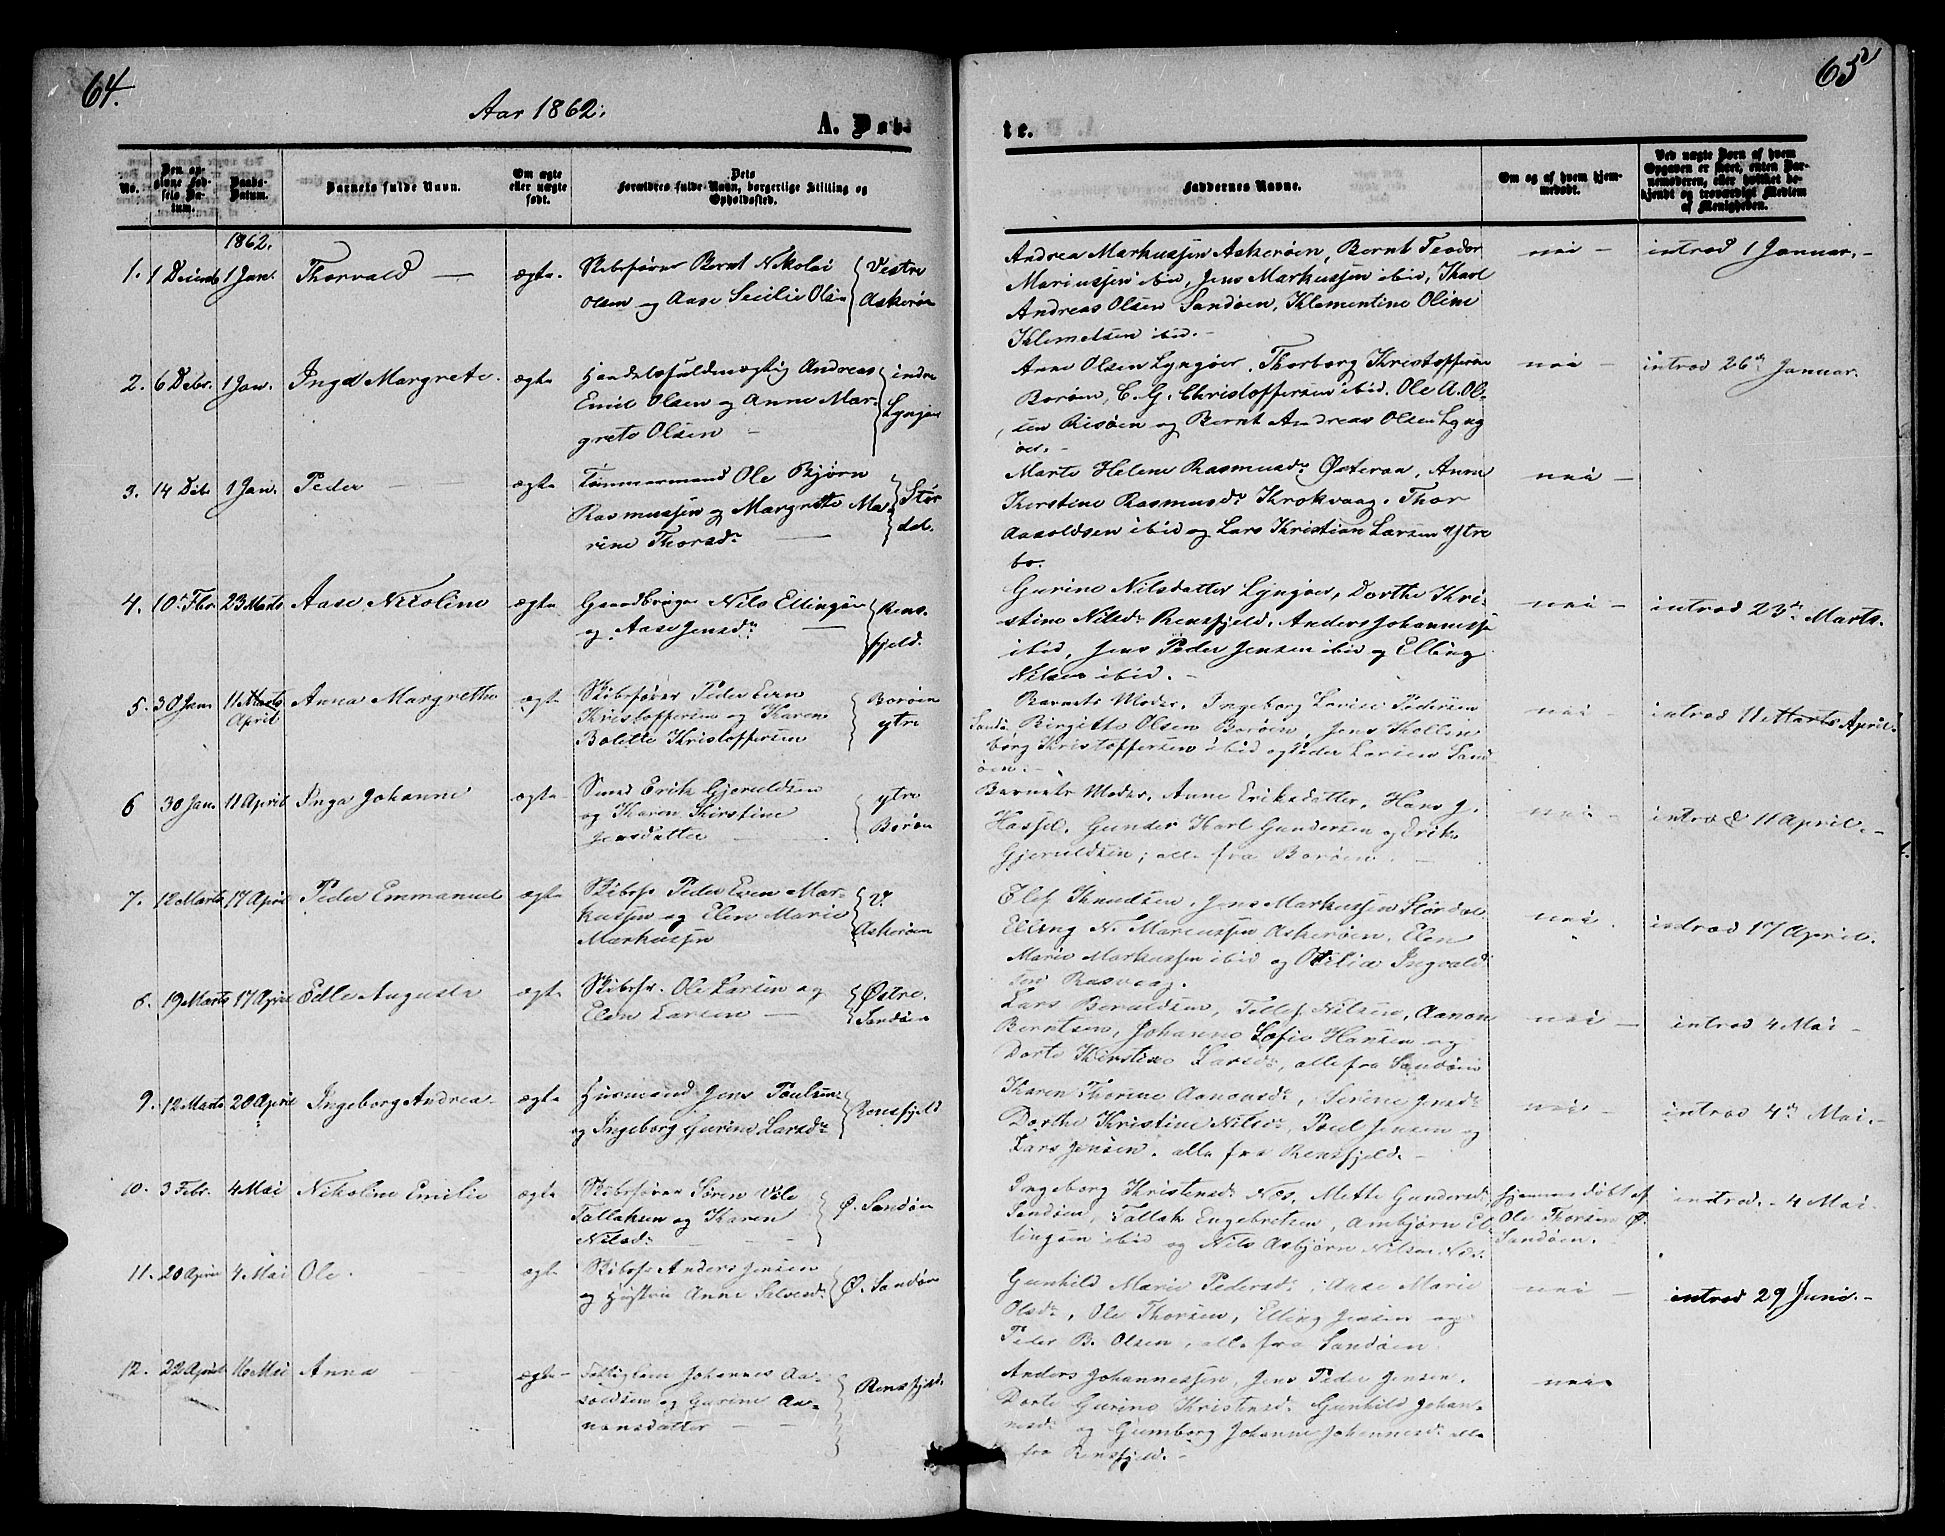 64.
Aar 1862.
A. Døb-
No.
Den an-
givne Fød-
sels Da-
tum.
Daabs-
Datum.
Barnets fulde Navn.
Om ægte
eller uægte
født.
Dets
Forældres fulde Navn, borgerlige Stilling og
Opholdssted.
1862.
1. 1 Decemb 1 Jan. Thorvald — ægte. Skibsfører Bernt Nikolai Vestre
Olsen og Aase Secilie Olsen Askerøen
2. 6 Debr. 1 Jan. Inga Margrete. ægte Handelsfuldmægtig Andreas indre
Emil Olsen og Anne Mar- Lyngøer
grete Olsen —
3. 14 Debr 1 Jan. Peder — ægte Tømmermand Ole Bjørn
Rasmussen og Margrethe Ma- Stør
rine Thorsdr — dal.
4. 10 Fbr. 23 Marts Aase Nicoline ægte Gaardbruger Nils Ellingsen Rens-
og Aase Jensdr — fjeld.
5. 30 Jan 11 Marts Anna Margrethe ægte Skibsfører Peder Even Borøen
April Kristoffersen og Karen ytre
Bolette Kristoffersen
6 30 Jan 11 April Inga Johanne ægte Smed Erik Gjeruldsen ytre
og Karen Kirstine Borøen
Jensdatter —
7. 12 Marts 17 April Peder Emmanuel ægte Skibsf. Peder Even Mar- V.
kussen og Elen Marie Askerøen
Markussen
8. 19 Marts 17 April Edle Augusta ægte Skibsfr. Ole Larsen og Østre.
Elen Larsen — Sandøen
9. 12 Marts 20 April Ingeborg Andrea. ægte Husmand Jens Poulsen Rensfjeld
og Ingeborg Gurine Larsdr
10. 3 Febr. 4 Mai Nikoline Emilie ægte Skibsfører Søren Vile Ø. Sandøen
Tallaksen og Karen
Nilsdr —
11. 20 April 4 Mai Ole. ægte Skibsfr Anders Jensen Ø. Sandøen
og Hustru Anne
12. 22 April 16 Mai Anna ægte — Fattiglem Johannes Aa- Rensfjeld.
soldsen og Gurine Aa-
nonsdatter —
65
te.
Faddernes Navne.
Om og af hvem hjem-
medøbt.
Ved uægte Børn af hvem
Opgaven er skeet, enten Bar-
nemoderen, eller hvilket be-
kjendt og troværdigt Medlem
af Menigheden.
Andrea Markussen Askerøen, Bernt Teodor nei — introd 1 Januar. —
Mariussen ibid, Jens Markussen ibid, Karl
Andreas Olsen Sandøen, Klementine Oline
Klemetsen ibid. —
Anne Olsen Lyngøer, Thorborg Kristoffersen nei — introd 26de Januar.
Borøen, C. G. Christoffersen ibid. Ole A. Ol-
sen Risøen og Bernt Andreas Olsen Lyng
øer. —
Marte Helene Rasmusdr Østeraa, Anne nei —
Kirstine Rasmusdr Krokvaag, Thor
Aasoldsen ibid og Lars Kristian Larsen Ystre
bo.
Gurine Nilsdatter Lyngøer, Dorthe Kri- nei — introd 23de Marts.
stine Nilsdr Rensfjeld, Anders Johannessen
ibid, Jens Peder Jensen ibid og Elling
Nilsen ibid. —
Barnets Moder, Ingeborg Lovise Pedersen nei introd 11 Marts April
Sandø. Birgitte Olsen Borøen, Jens
Kristoffersen ibid og Peder Larsen Sand
øen. —
Barnets Moder, Anne Eriksdatter, Hans J. nei — introd 11 April. —
Hassel, Gunder Karl Gundersen og Erik
Gjeruldsen, alle fra Borøen. —
Elef Knudsen, Jens Markussen Størdal nei introd 17 April.
Elling N. Mareussen Askerøen, Elen
Marie Markussen ibid og Otilia Ingvald
sen Rasvaag.
Lars Beruldsen, Tellef Nilsen, Aanon nei — introd 4 Mai —
Berntsen, Johanne Sofie Hansen og
Dorte Kirstine Larsdr, alle fra Sandøen
Karen Thorine Aanonsdr, Serine Jensdr nei — introd 4de Mai. —
Dorthe Kristine Nilsdr, Poul Jensen og
Lars Jensen, alle fra Rensfjeld. —
Ingeborg Kristensdr Næs, Mette Gundersdr hjemmedøbt af introd. — 4 Mai.
Sandøen, Tallak Engebretsen, Ambjørn El- Ole Thorsen Ø.
lingsen ibid og Nils Asbjørn Nilsen Næs. Sandøen.
Gunhild Marie Pedersdr, Aase Marie nei — introd 29 Juni. —
Olsdr, Ole Thorsen, Elling Jensen og
Peder B. Olsen, alle fra Sandøen
Anders Johannessen, Jens Peder Jensen, nei
Dorte Gurine Kristensdr Gunhild Johan-
nesdr og Gumborg Johanne Johannesdr alle
fra Rensfjeld. —